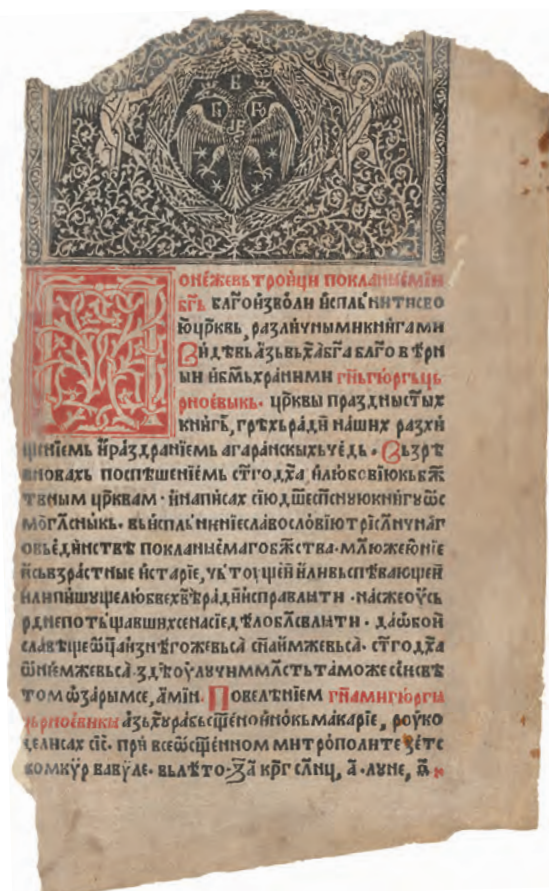 В
ГН ГЮ
ОНЕЖЕВЬ ТРОИЦИ ПОКЛАНЫЕМЫИ
БГЬ БЛГОИЗВОЛИ ИСПЛЬНИТИ СВО
Ю ЦРКВЬ, РАЗЛИЧНЫМИ КНИГАМИ
ВИДѢВЬ АЗЬ ВЬ ХА БГА БЛГО ВѢРН
ЫИ И БМЬ ХРАНИМИ ГНЬ ГЮРГЬ ЦЬ
РНОЕВЫКЬ. ЦРКВЫ ПРАЗДНЫ СТЫХ
КНИГЬ, ГРѢХЬ РАДИ НАШИХ РАЗХИ
ЩЕНИЕМЬ И РАЗДРАНИЕМЬ АГАРАНСКЫХЬ ЧЕДЬ. ВЬЗРЕ
ВНОВАХЬ ПОСПѢШЕНИЕМЬ СТГО ДХА И ЛЮБОВИЮ КЬ БЖ
ТВНЫМ ЦРКВАМ. И НАПИСАХ СИЮ ДШЕСПСНУЮ КНИГУ ѠС
МОГЛСНЫКЬ. ВЬ ИСПЛЬНКНИЕ СЛАВОСЛОВИЮ ТРИСЛНЧНАГ
О ВЬ ЕДИНСТВѢ ПОКЛАНЫЕМАГО БЖСТВА. МЛЮ ЖЕ ЮНИЕ
И СЬВЗРАСТНЫЕ И СТАРИЕ, ЧЬТОУЩЕИ ИЛИ ВЬСПѢВАЮЩЕИ
ИЛИ ПИШУЩЕ ЛЮБВЕ ХВѢ РАДИ ИСПРАВЛЫТИ. НАС ЖЕ ОУСЬ
РДНЕ ПОТЬЩАВШИХСЕ НА СИЕ ДѢЛО БЛСВЛЫТИ. ДА ѠБОИ
СЛАВЕЩЕ ѠЦА ИЗ НѢГОЖЕ ВЬСА СНА ИМЖЕ ВЬСА. СТГО ДХА
Ѡ НЕМЖЕ ВЬСА ЗДѢ ОУЛУЧИМ МЛСТЬ ТАМОЖЕ СЕИ СВѢ
ТОМ ѠЗАРЫМСЕ, АМИН. ПОВЕЛѢНИЕМ ГНА МИ ГЮРГЫ
ЦЬРНОЕВИКЫ АЗЬ ХУ РАБЬ СЩЕНОИНОКЬ МАКАРИЕ, РОУКО
ДЕЛИСАХ СИЕ. ПРИ ВСЕѠСЩЕННОМ МИТРОПОЛИТЕ ЗЕТС
КОМ КУР ВАВУЛЕ. ВЬ ЛѢТО
КРГ СЛНЦ, А. ЛУНЕ,